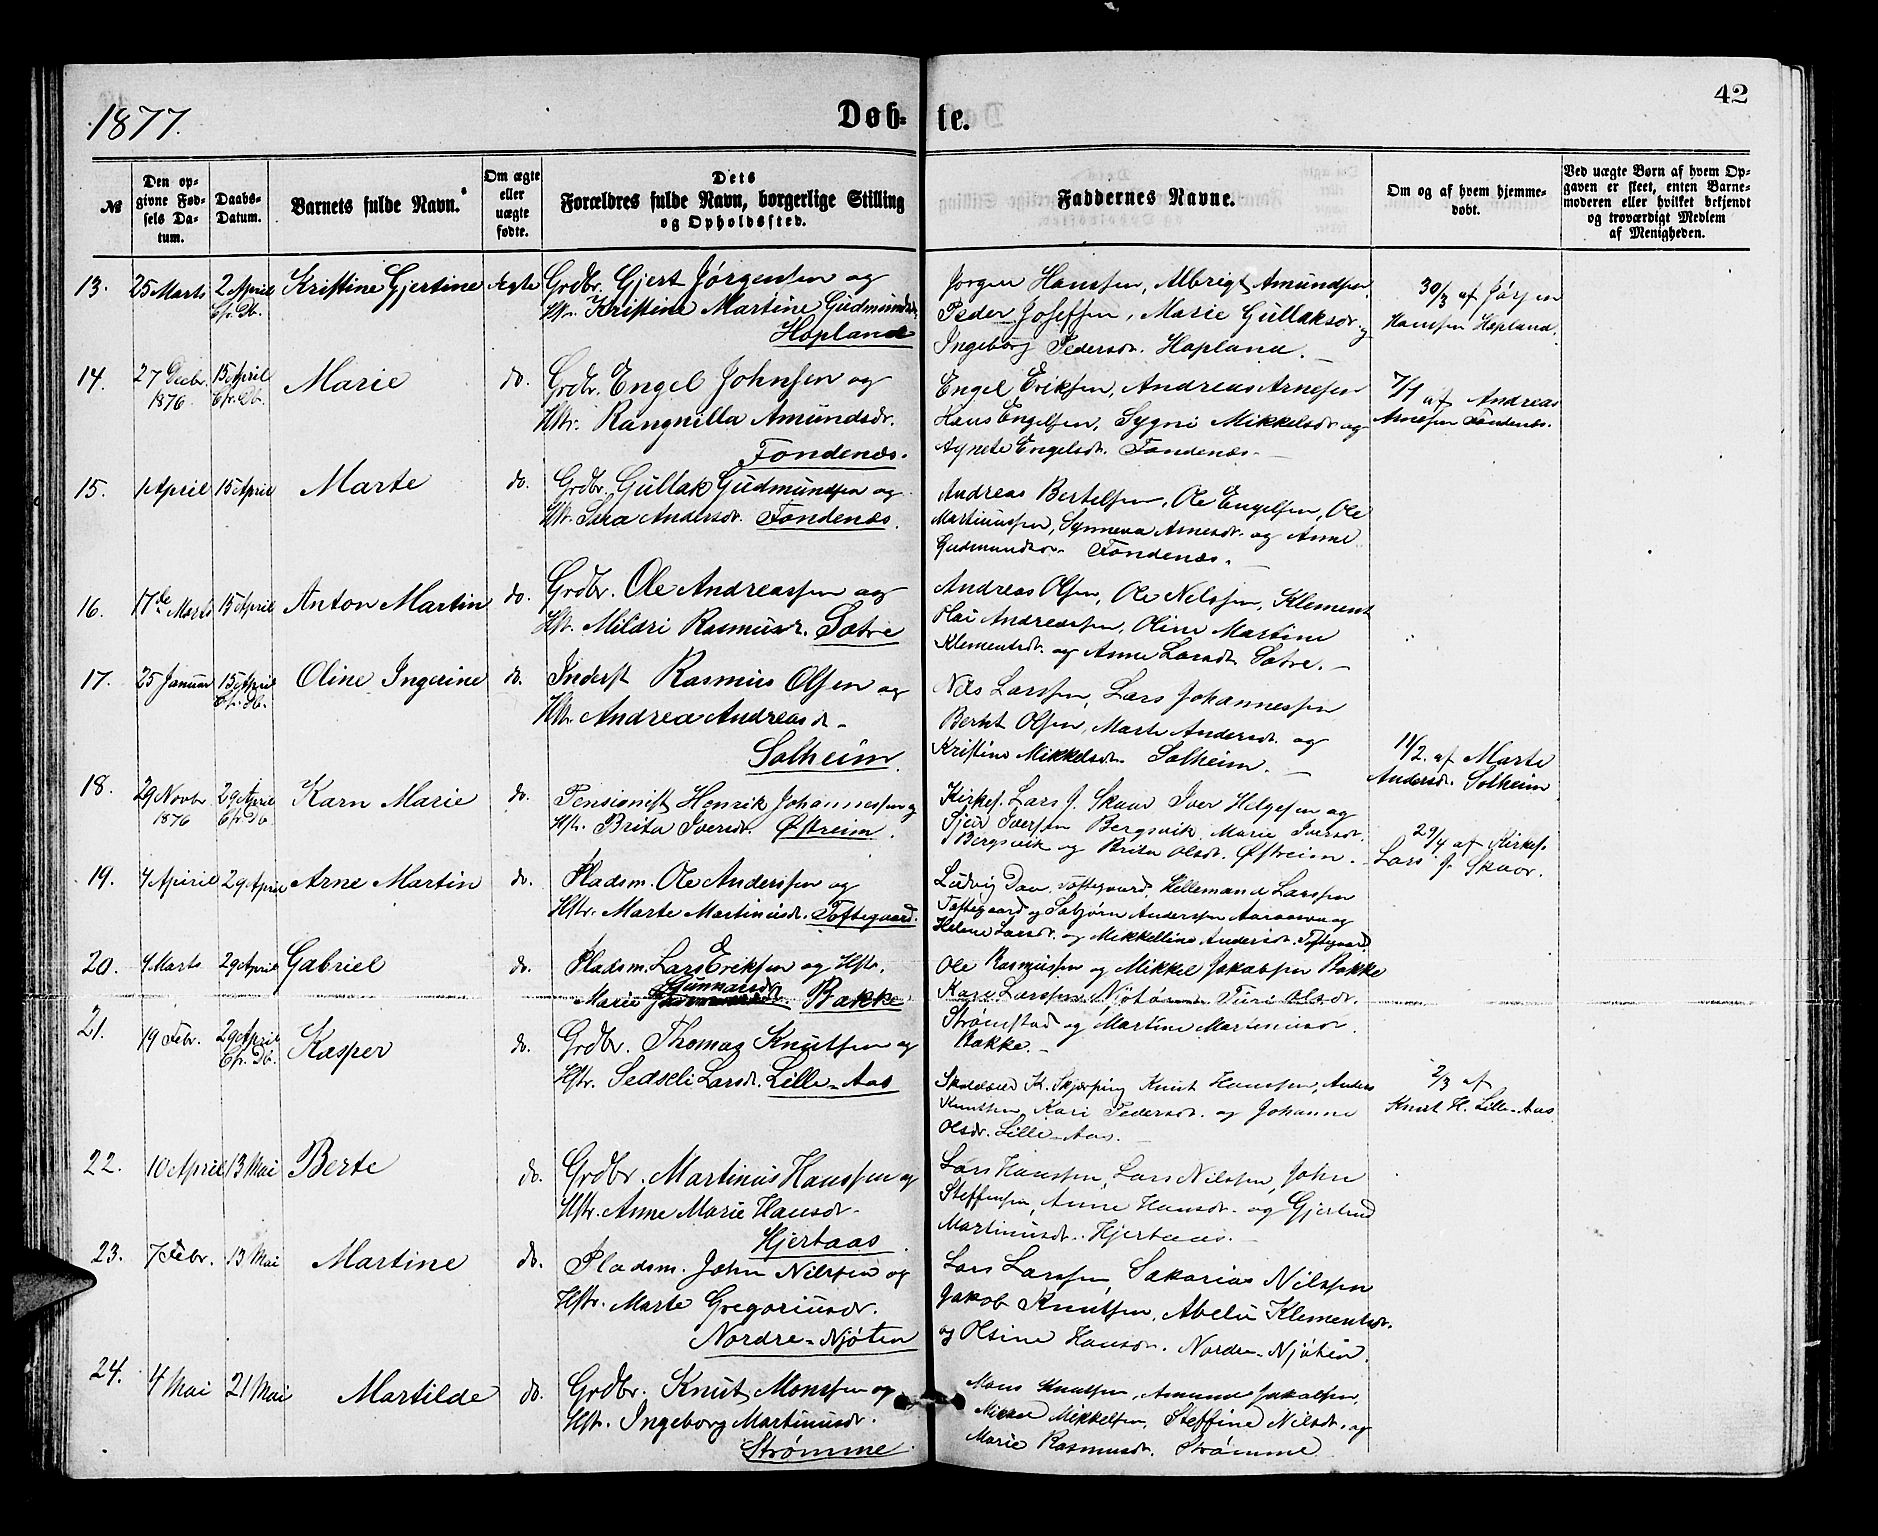 1877.
Døb-
te.
42
№
Den op-
givne Fød-
sels Da-
tum.
Daabs-
Datum.
Barnets fulde Navn.
Om ægte
eller
uægte
fødte.
Dets
Forældres fulde Navn, borgerlige Stilling
og Opholdssted.
Faddernes Navne.
Om og af hvem hjemme-
døbt.
Ved uægte Børn af hvem Op-
gaven er skeet, enten Barne-
moderen eller hvilket bekjendt
og troværdigt Medlem
af Menigheden.
13. 25 Marts 2 April Kristine Gjertine Ægte Grdbr. Gjert Jørgensen og
Hstr. Kristine Martine Gudmundsdr.
Hopland
Jørgen Hanssen, Albrigt Amundsen,
Peder Joseffsen, Marie Gullaksdr. og
Ingeborg Pedersdr. Hopland.
30/3 af Jørgen
Hanssen Hopland.
14. 27 Decbr. 15 April Marie do. Grdbr. Engel Johnsen og
1876.
Hstr. Rangnilla Amundsdr.
Fondenæs.
Engel Eriksen, Andreas Arnesen
Hans Engelsen, Sygni Mikkelsdr. og
Agnete Engelsdr. Fondenæs.
7/1 af Andreas
Arnesen Fondenæs.
15. 1 April 15 April Marte do. Grdbr. Gullak Gudmundsen og
Hst. Sara Andersdr. Fondenæs.
Andreas Bertelsen, Ole Engelsen, Ole
Martinussen, Synneva Arnesdr. og Anne
Gudmundsdr. Fondenæs.
16. 17de Marts 15 April Anton Martin do. Grdbr. Ole Andreassen og
Hst. Mildri Rasmusdr. Sætre
Andreas Olsen, Ole Nilssen, Klement
Olai Andreassen, Oline Martine
Klementsdr. og Anne Larsdr. Sætre.
17. 25 Januar 15 April Oline Ingerine do. Inderst Rasmus Olsen og
Hstr. Andrea Andreasdr.
Solheim.
Nils Larssen, Lars Johannessen
Bernt Olsen, Marte Andersdr. og
Kristine Mikkelsdr. Solheim.
11/2. af Marte
Andersdr. Solheim
18. 29 Novbr. 29 April Karn Marie do. Pensionist Henrik Johannessen og
1876
Hstr. Brita Iversdr. Østreim.
Kirkes. Lars J. Skaar Iver Helgesen og
Iversen Bergsvik. Marie Iversdr.
Bergsvik og Brita Olsdr. Østreim.
29/4 af Kirkes.
Lars J. Skaar.
19. 4 Apiril 29 April Arne Martin do. Pladsm. Ole Anderssen og
Hstr. Marte Martinusdr. Toftegaard.
Ludvig Daae, Toftegaard, Hellemand Larssen
Toftegaard og Sabjørn Anderssen og
Helene Larsdr. og Mikkelline Andersdr. Toftegaard
20. 4 Marts 29 April Gabriel do. Pladsm. Lars Eriksen og Hstr.
Gunnarsdr
Marie Bakke
Ole Rasmussen og Mikkel Jakobsen Bakke
Kare Larssen, Njøten Turi Olsdr.
Strømstad og Martine Martinusdr.
Bakke.
21. 19 Febr. 29 April Kasper do. Grdbr. Thomas Knutsen og
Hstr. Sedseli Larsdr. Lille-Aas
K. Skjerping Knut Hanssen, Anders
Knutsen, Kari Pedersdr. og Johanne
Olsdr. Lille-Aas.
2/3 af
Knut H. Lille-Aas
22. 10 April 13 Mai Berte do. Grdbr. Martinus Hanssen og
Hstr. Anne Marie Hansdr.
Hjertaas.
Lars Hanssen, Lars Nilssen, John
Steffensen, Anne Hansdr. og Gjertrud
Martinusdr. Hjertaas.
23. 7 Febr. 13 Mai Martine do. Pladsm. John Nilssen og
Hstr. Marte Gregoriusdr.
Nordre-Njøten
Lars Larssen, Sakarias Nilssen
Jakob Knutsen, Abelu Klementsdr.
og Olsine Hansdr. Nordre-Njøten.
24. 4 Mai 21 Mai Martilde do. Grdbr. Knut Monssen og
Hstr. Ingeborg Martinusdr.
Strømme.
Mons Knutsen, Amund Jakobsen,
Mikkel Mikkelsen, Steffine Nilsdr. og
Marie Rasmusdr. Strømme